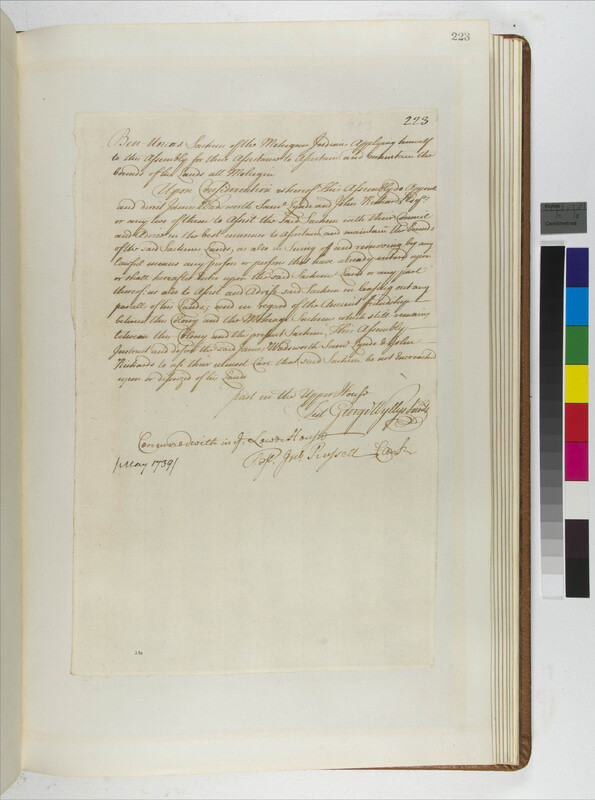 223
223
Ben Uncas Sachem of the Mohegan Indians Applying himself
to this Assembly for their Assistance to Ascertain and maintain the
bounds of the Lands att Mohegin
Upon Consideration whereof This Assembly do Appoint
and direct James Wadsworth Samll Lynde and John Richards Esqrs
or any two of them to Assist the said Sachem with their Council
and Advice in the best manner to Ascertain and maintain the bounds
of the said Sachems Lands, as also in Suing of and removing by any
lawfull means any person or persons that have already entred upon
or shall hereafter Enter upon the said Sachems Land or any part
thereof as also to Assist and Advise said Sachem in Leasing out any
parcell of his Lands; and in regard of the Ancient friendship
between this Colony and the Mohegan Sachem which still remains
between this Colony and the present Sachem; This Assembly
Instruct and desire the said James Wadsworth Samll Lynde & John
Richards to use their utmost Care that said Sachem be not Encroached
upon or disseized of his Lands
past in the Upper House
Test George Wyllys Secretr
Concurred with in ye Lower House
Test Jno Russell Clerk
/May 1739/